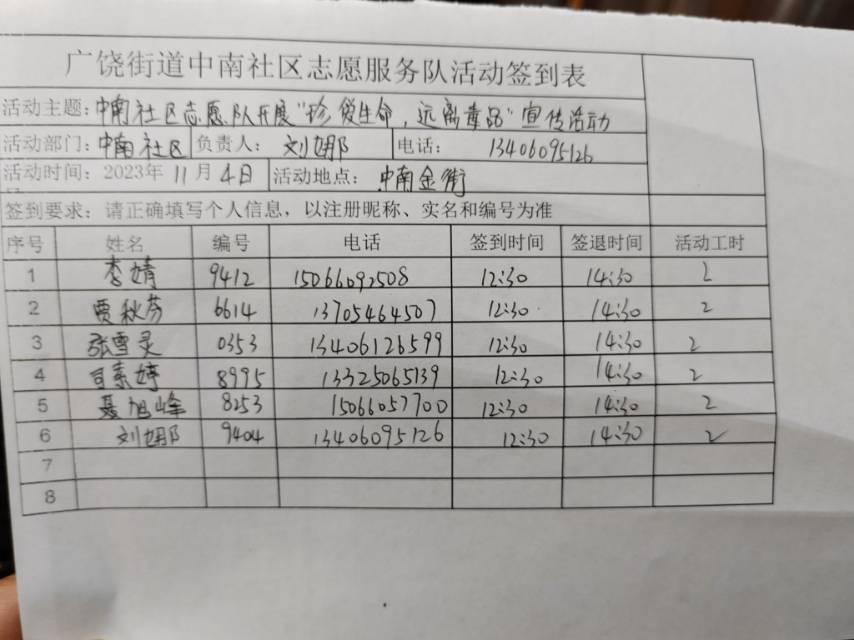 广饶街道中南社区志愿服务队活动签到表
活动主题：中南社区志愿队开展"珍爱生命，远离毒品"宣传活动
活动部门：中南社区 负责人：刘娜 电话：13406095126
活动时间：2023年11月4日 活动地点：中南金街
签到要求：请正确填写个人信息，以注册昵称、实名和编号为准
序号 姓名 编号 电话 签到时间 签退时间 活动工时
1 李婧 9412 15066092508 12:30 14:30 2
2 贾秋芬 6614 13705464507 12:30 14:30 2
3 张雪灵 0353 13406126599 12:30 14:30 2
4 8995 13325065139 12:30 14:30 2
5 聂旭峰 8253 15066057700 12:30 14:30 2
6 刘娜 9404 13406095126 12:30 14:30 2
7
8